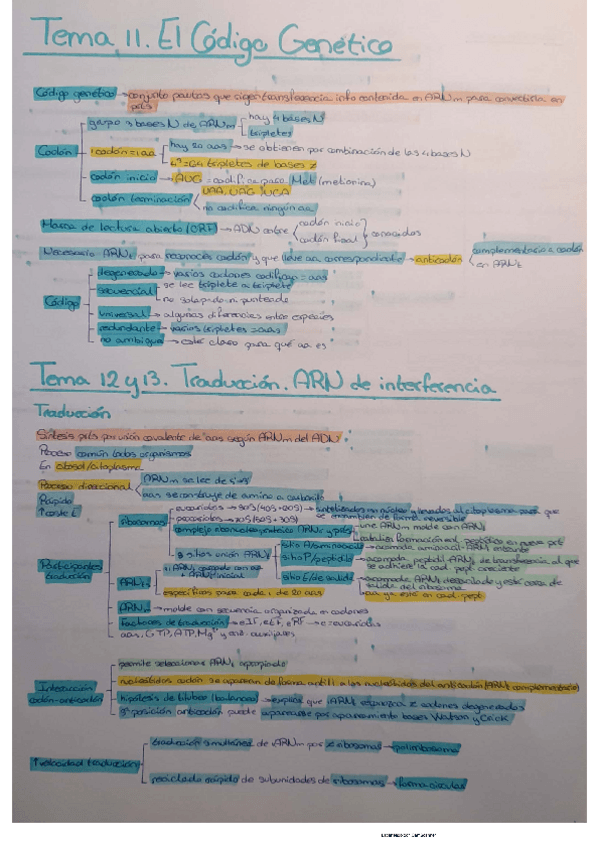 Tema 11. El Código Genético
Código genético → conjunto pautas que rigen transferencia info contenida en ARNm para convertirla en
prots
Codón
grupo 3 bases N de ARNm
hay 4 bases N
tripletes
1 codón = 1 aa
hay 20 aas → se obtienen por combinación de las 4 bases N
4³ = 64 tripletes de bases
codón inicio → AUG = codif. para Met (metionina)
codón terminación
UAA, UAG, UGA
no codifica ningún aa
Marco de lectura abierto (ORF) → ADN entre
codón inicio
codón final
conocidos
Necesario ARNt para reconocer codón y que lleve aa correspondiente → anticodón
complementario a codón
en ARNt
Código
degenerado → varios codones codifican = aas
secuencial
se lee triplete a triplete
no solapado ni puntuado
universal → algunas diferencias entre especies
redundante → varios tripletes = aas
no ambiguo → está claro para qué aa es
Tema 12 y 13. Traducción. ARN de interferencia
Traducción
Síntesis prots por unión covalente de aas según ARNm del ADN
Proceso común todos organismos
En citosol/citoplasma
Proceso direccional
ARNm se lee de
aas se construye de amino a carboxilo
Rápido
↑ coste E
Participantes
traducción
Ribosomas
eucariotas → 80S (40S + 60S) →
procariotas → 70S (50S + 30S)
complejo
ARNr y prots
une ARNm molde con ARNt
3 sitios unión ARNt
sitio A/aminoacil → acomoda aminoacil-ARNt entrante
sitio P/peptidil → acomoda peptidil-ARNt de transferencia al que
se adhiere la cad. pept. creciente
sitio E/de salida → acomoda ARNt desacilado y está cerca de
salida del ribosoma
aa ya está en cad. pept
ARNt
específicos para cada 1 de 20 aas
ARNm → molde con secuencia organizada en codones
Factores de traducción → eIF, eEF, eRF → e = eucariotas
aas, GTP, ATP, Mg²⁺ y enz. auxiliares
Interacción
codón-anticodón
permite seleccionar ARNt apropiado
nucleótidos codón se aparean de forma antill a los nucleótidos del anticodón (ARNt complementario)
hipótesis de titubeo (balanceo) → explica que ARNt reconozca 2 codones degenerados
3ª posición anticodón puede aparearse por apareamiento bases Watson y Crick
↑ velocidad traducción
traducción simultánea de ARNm por ribosomas → polirribosoma
reciclado rápido de subunidades de ribosomas → forma circular